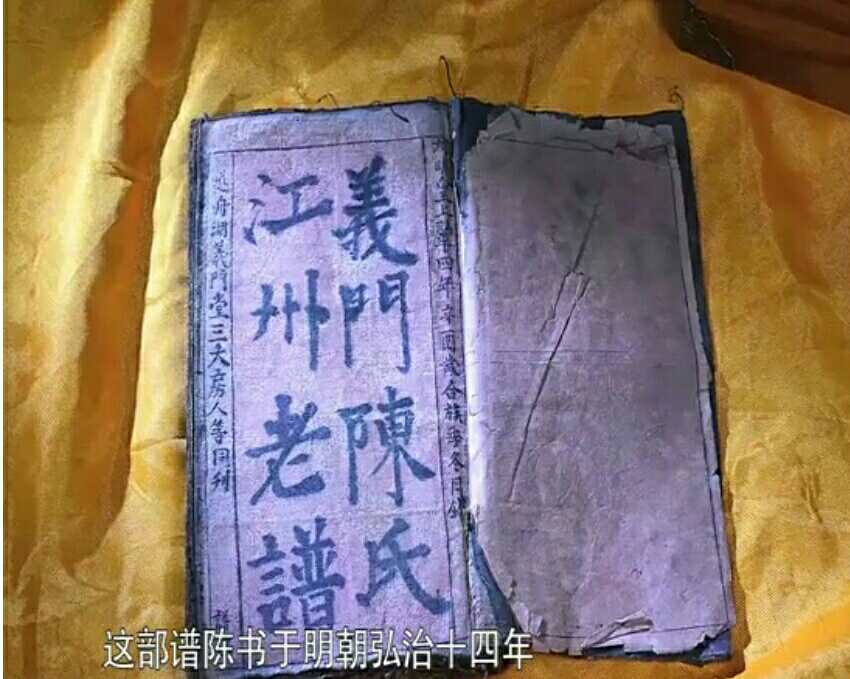 四年辛酉歲合族季冬月
義門陳氏
江州老譜
舟湖義門堂三大房人等同刊
这部谱陈书于明朝弘治十四年